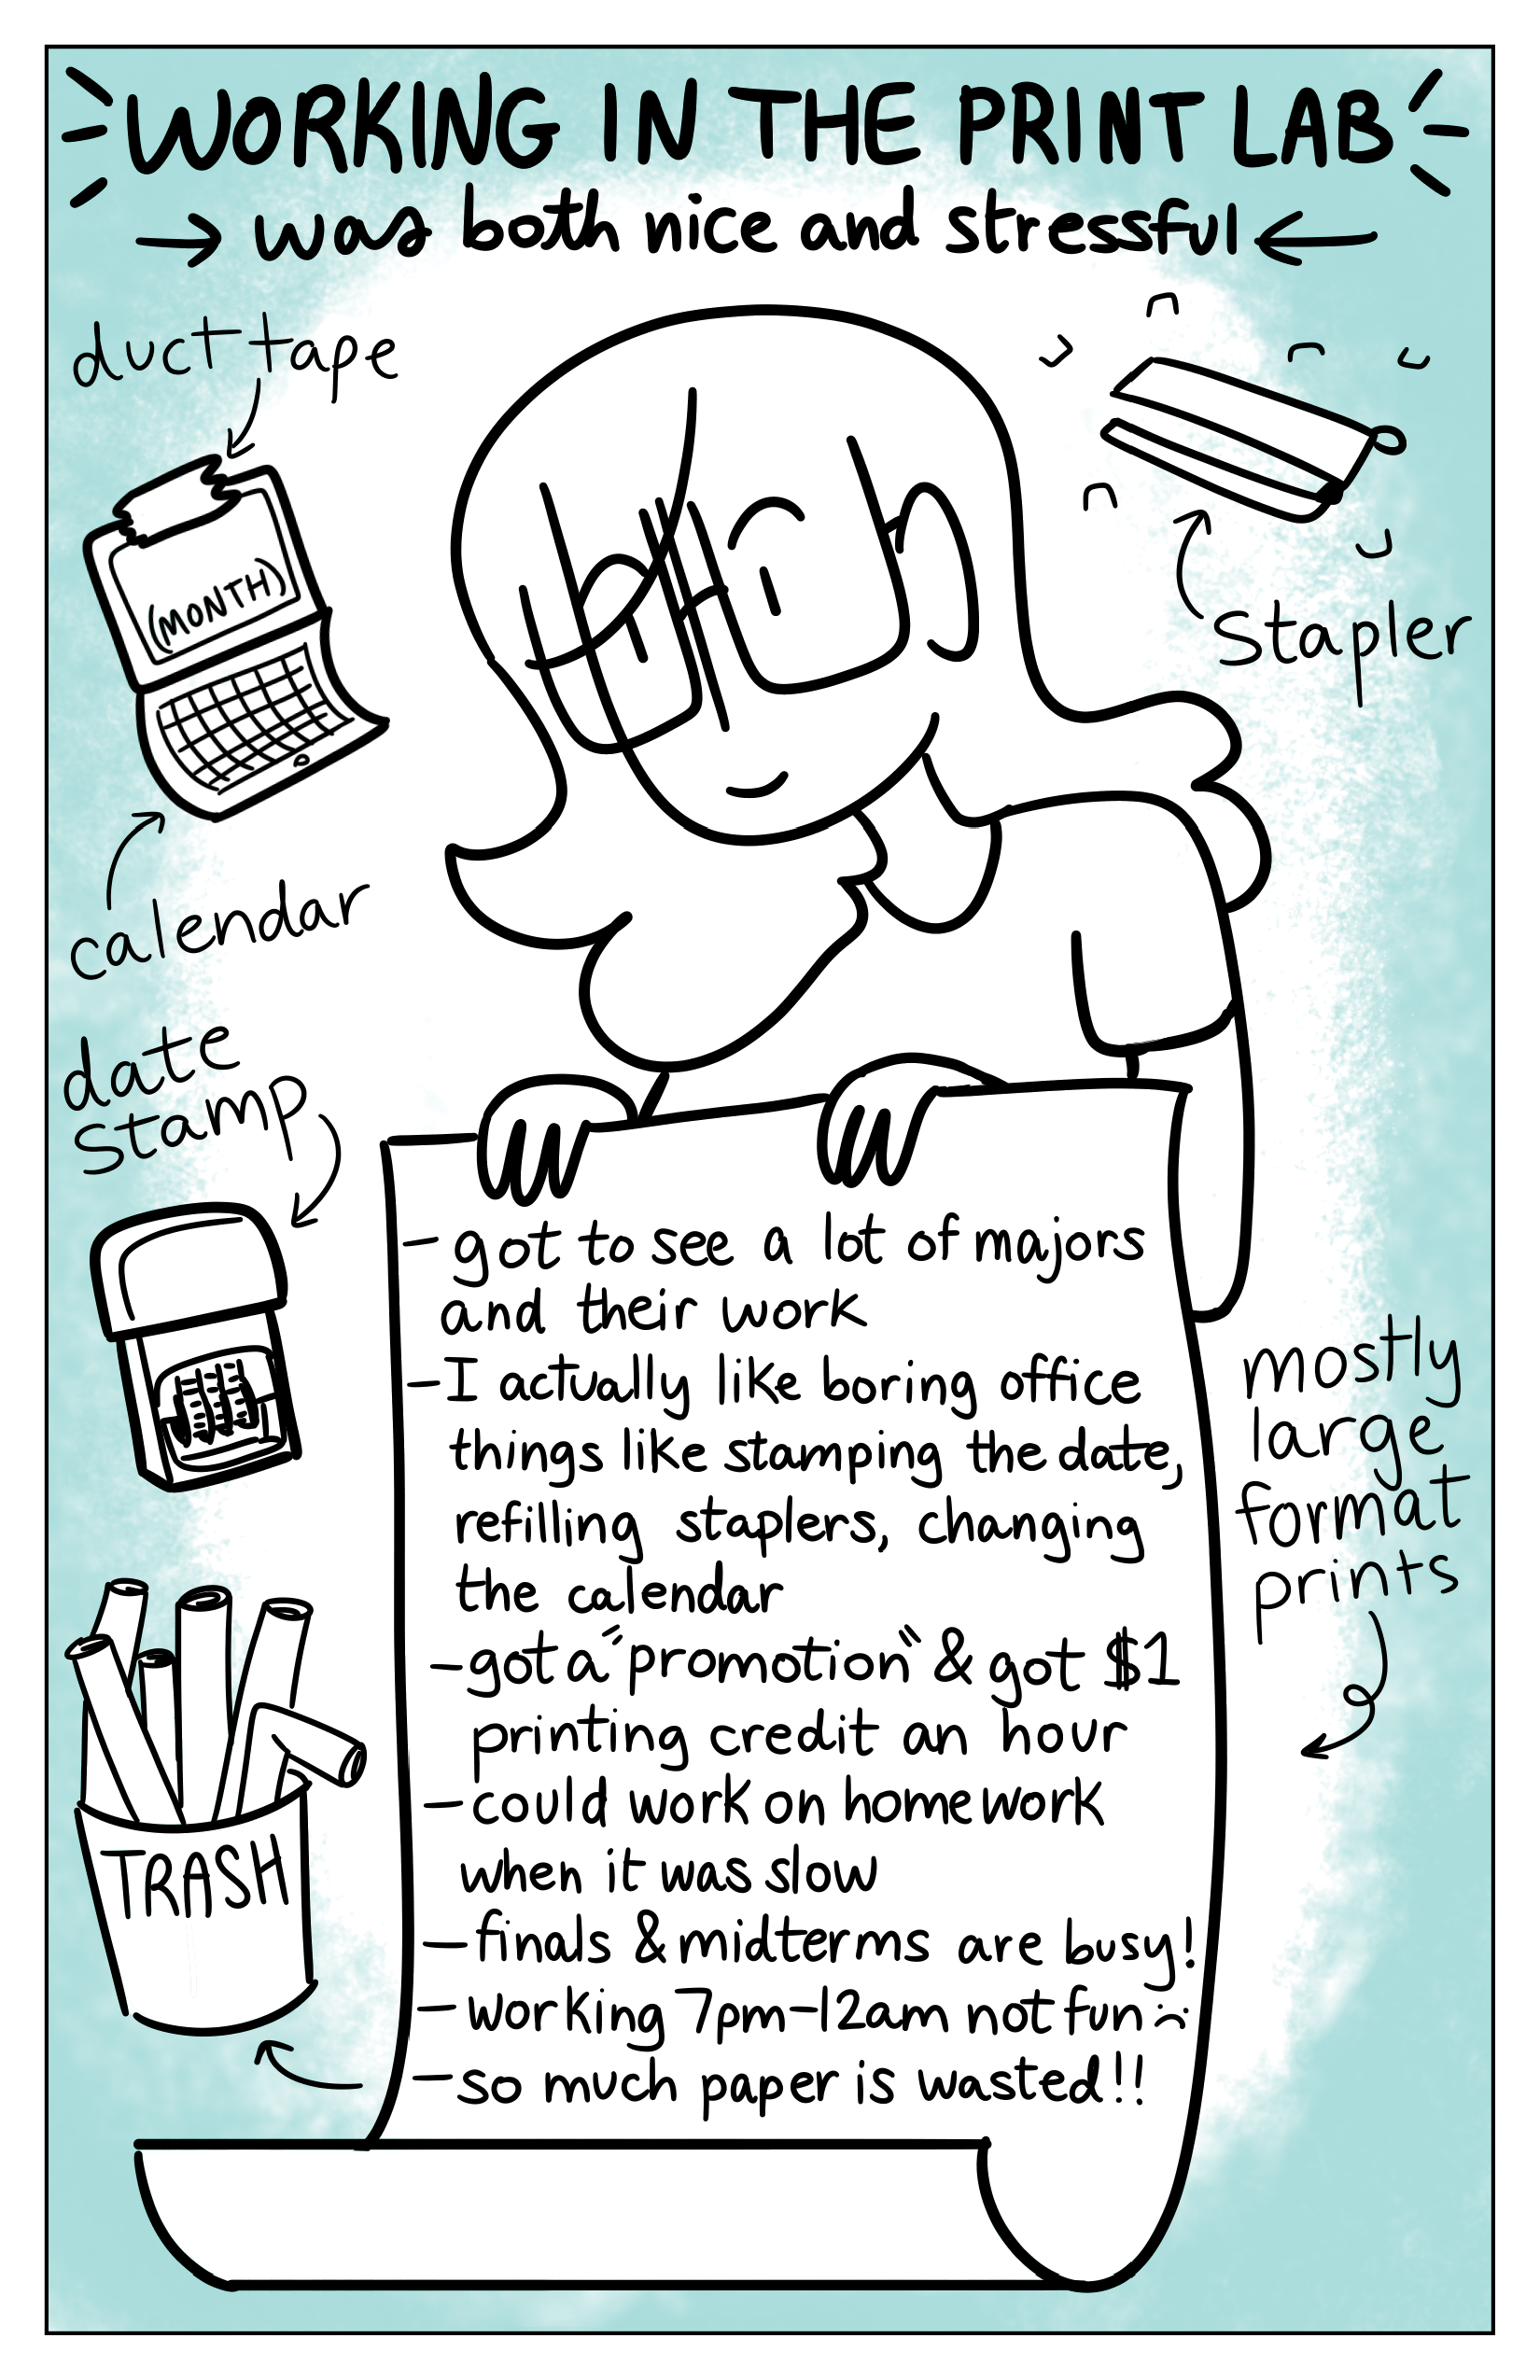 WORKING IN THE PRINT LAB
→ was both nice and stressful ←
duct tape
(MONTH)
calendar
stapler
date
stamp
- got to see a lot of majors
and their work
- I actually like boring office
things like stamping the date,
refilling staplers, changing
the calendar
- got a "promotion" & got $1
printing credit an hour
- could work on homework
when it was slow
- finals & midterms are busy!
- working 7pm-12am not fun :(
- so much paper is wasted!!
mostly
large
format
prints
TRASH